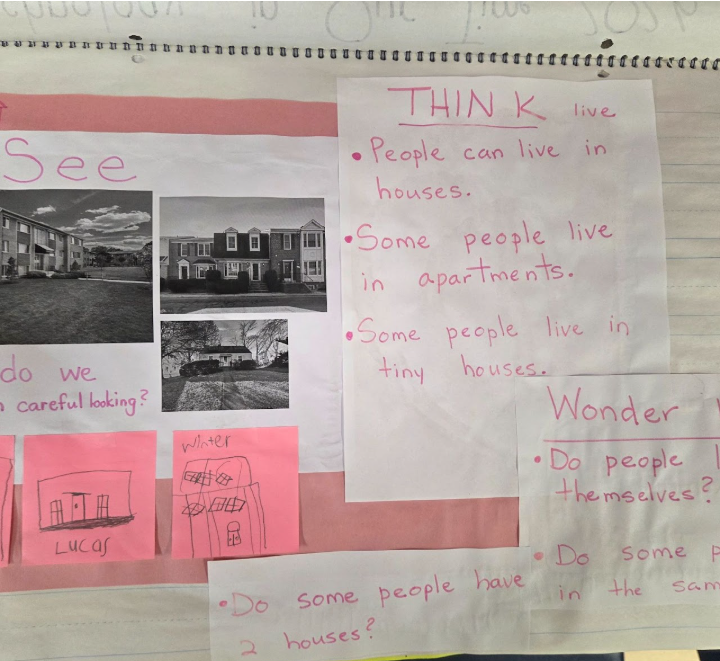 in Our Time 2024
See
do we
careful looking?
Winter
LUCAS
THINK live
• People can live in
houses.
• Some people live
in apartments.
• Some people live in
tiny houses.
Wonder
• Do people
themselves?
• Do some
in the
• Do some people have
2 houses?